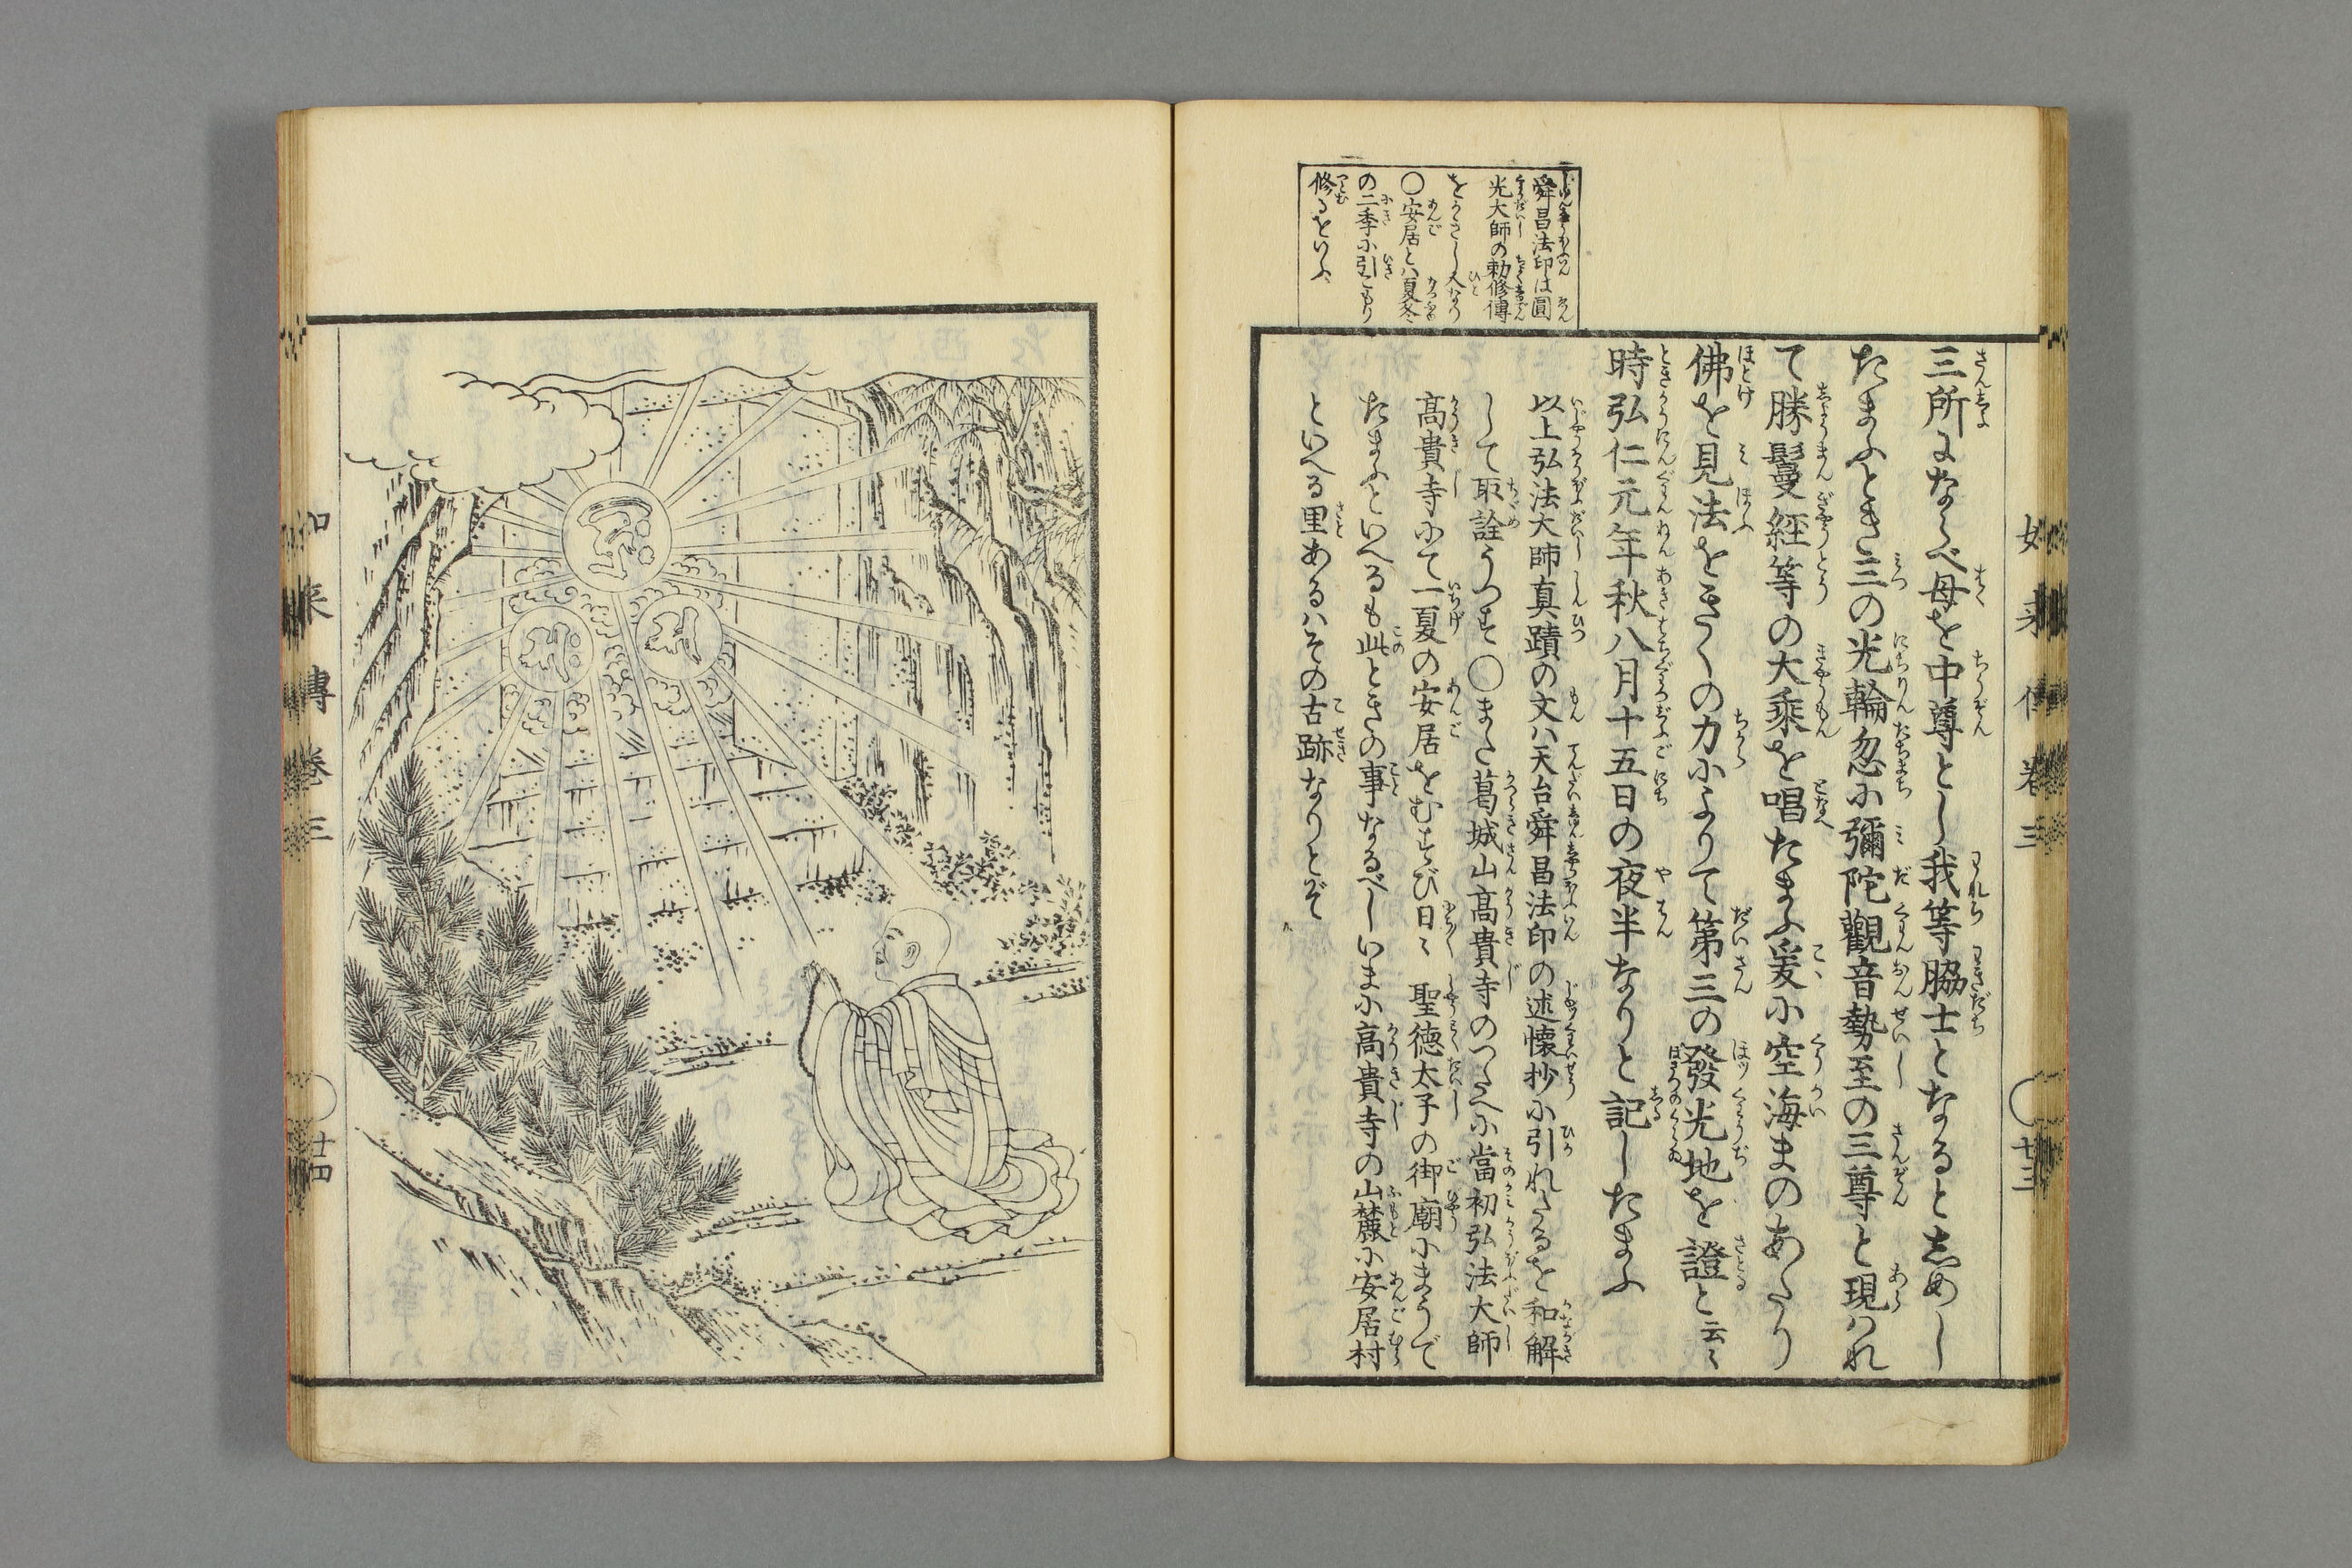 如来傳巻三
廿三
三所にならべ母を中尊とし我等脇士となるとしめし
たまふとき三の光輪忽に彌陀觀音勢至の三尊と現はれ
て勝鬘經等の大乘を唱たまふ爰に空海まのあたり
佛を見法をきくの力によりて第三の發光地を證と云〻
時弘仁元年秋八月十五日の夜半なりと記したまふ
以上弘法大師真蹟の文ハ天台舜昌法印の述懐抄に引れたるを和解
して取詮うつす○また葛城山高貴寺のつたへに當初弘法大師
高貴寺にて一夏の安居をむすび日〻聖徳太子の御廟にまうで
たまふといへるも此ときの事なるべしいまに高貴寺の山麓に安居村
といへる里あるハその古跡なりとぞ
舜昌法印は圓
光大師の勅修傳
をかきし人なり
○安居とハ夏冬
の二季に引こもり
修るをいふ
如来傳巻三
廿四